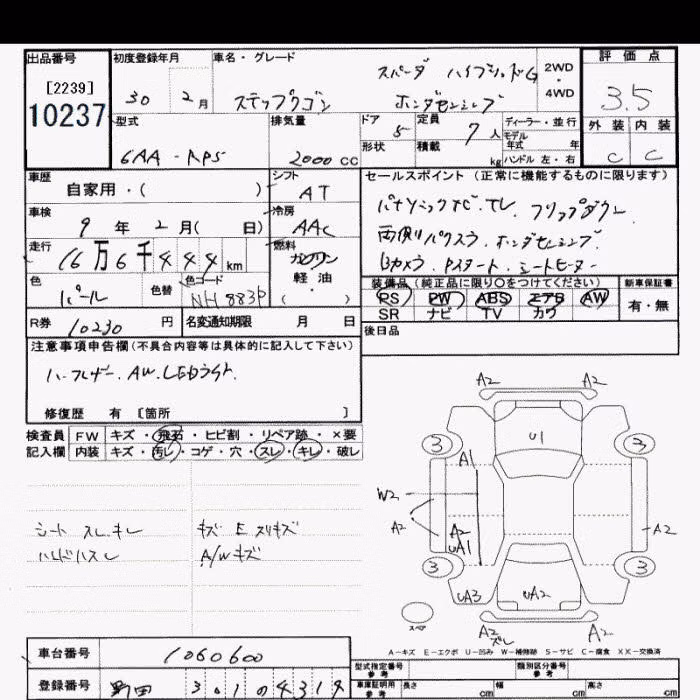 出品番号
[2239]
10237
初度登録年月
30 2月
車名・グレード
スパーダ ハイブリッドG
ステップワゴン ホンダセンシング
2WD
・
4WD
評価点
3.5
外装 内装
C C
型式
6AA - RP5
排気量
2000 CC
ドア
5
形状
定員
7 人
積載
kg
ディーラー・並行
モデル
年式 年
ハンドル 左・右
車歴
自家用・( )
シフト
AT
車検
9 年 2 月( 日)
冷房
AAC
走行
16万6千444 km
燃料
ガソリン
軽油
・
( )
色
パール
色替
色コード
NH883P
R券
10230 円
名変通知期限 月 日
セールスポイント (正常に機能するものに限ります)
パナソニックナビ.TV. フリップダウン
両側パワスラ. ホンダセンシング
Bカメラ Pスタート. シートヒーター
装備品 (純正品に限り○をつけてください)
PS PW ABS エアB AW
SR ナビ TV カワ
新車保証書
有・無
後日品
注意事項申告欄 (不具合内容等は具体的に記入して下さい)
ハーフレザー. AW. LEDライト.
修復歴 有 [箇所 ]
検査員
記入欄
FW キズ・飛石・ヒビ割・リペア跡・×要
内装 キズ・汚レ・コゲ・穴・スレ・キレ・破レ
シート スレ.キレ
ハンドルスレ
キズ E スリキズ
A/W キズ
A2 A2
U1
3 3
A1
W2
A2
A2
UA1
A2
3 3
UA3 UA2
スペア
A2
ズレ
A2
A-キズ E-エクボ U-凹み W-補修跡 S-サビ C-腐食 XX-交換済
車台番号
1060600
登録番号
野田 301 の 4314
型式指定番号
参考
類別区分番号
参考
車庫証明用
参考
長さ cm 幅 cm 高さ cm